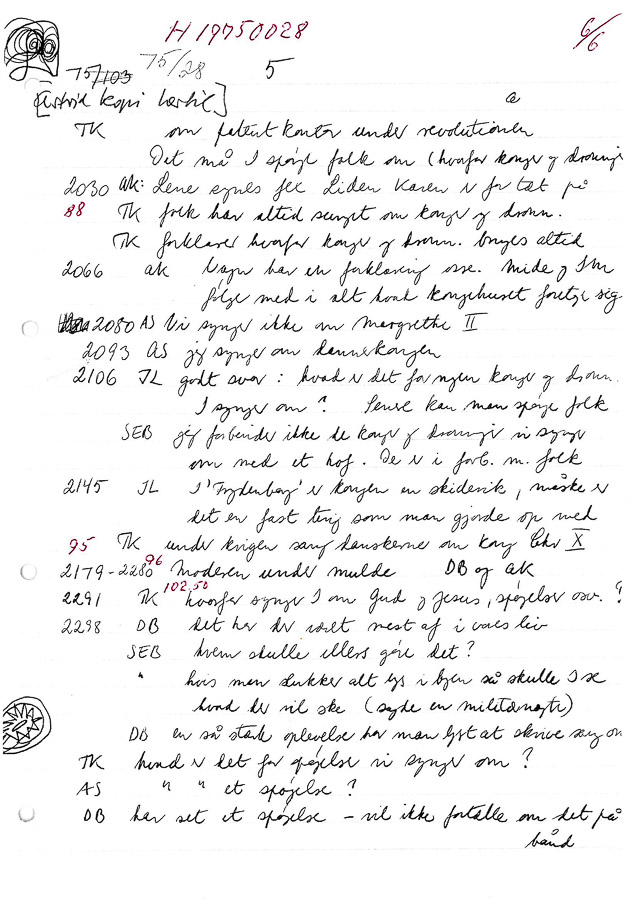 H 19750028
6/6
75/103 75/28 5
[Astrid kopi
a
TK om patent kontor under revolutionen
Det må I spørge folk om (hvorfor konger og dronninger
2030 AK: Lene synes ikke Liden Karen er for tæt på
88 TK folk har altid sunget om konger og dronn.
TK forklarer hvorfor konger og dronn. bruges altid
2066 AK har en forklaring osse.
følge med i alt hvad kongehuset foretger sig
2080 AS Vi synger ikke om Margrethe II
2093 AS jeg synger om dannerkongen
2106 JL godt svar: hvad er det for nogen konger og dronn.
I synger om? Senere kan man spørge folk
SEB jeg forbinder ikke de konger og dronninger vi synger
om med et hof. De er i forb. m. folk
2145 JL I 'Frydenborg' er kongen en skiderik, måske er
det en fast ting som man gjorde op med
95 TK under krigen sang danskerne om kong Chr X
2179-2280 96 Moderen under mulde DB og AK
102,50
2291 TK hvorfor synger I om Gud og Jesus, spøgelser osv. ?
2298 DB det har der været mest af i vores liv
SEB hvem skulle ellers gøre det?
" hvis man slukker alt lys i byen så skulle I se
hvad der vil ske (sagde en militærnægter)
DB en så stærk oplevelse har man lyst at skrive sang om
TK hvad er det for spøgelser vi synger om?
AS " " et spøgelse?
DB har set et spøgelse – vil ikke fortælle om det på
bånd